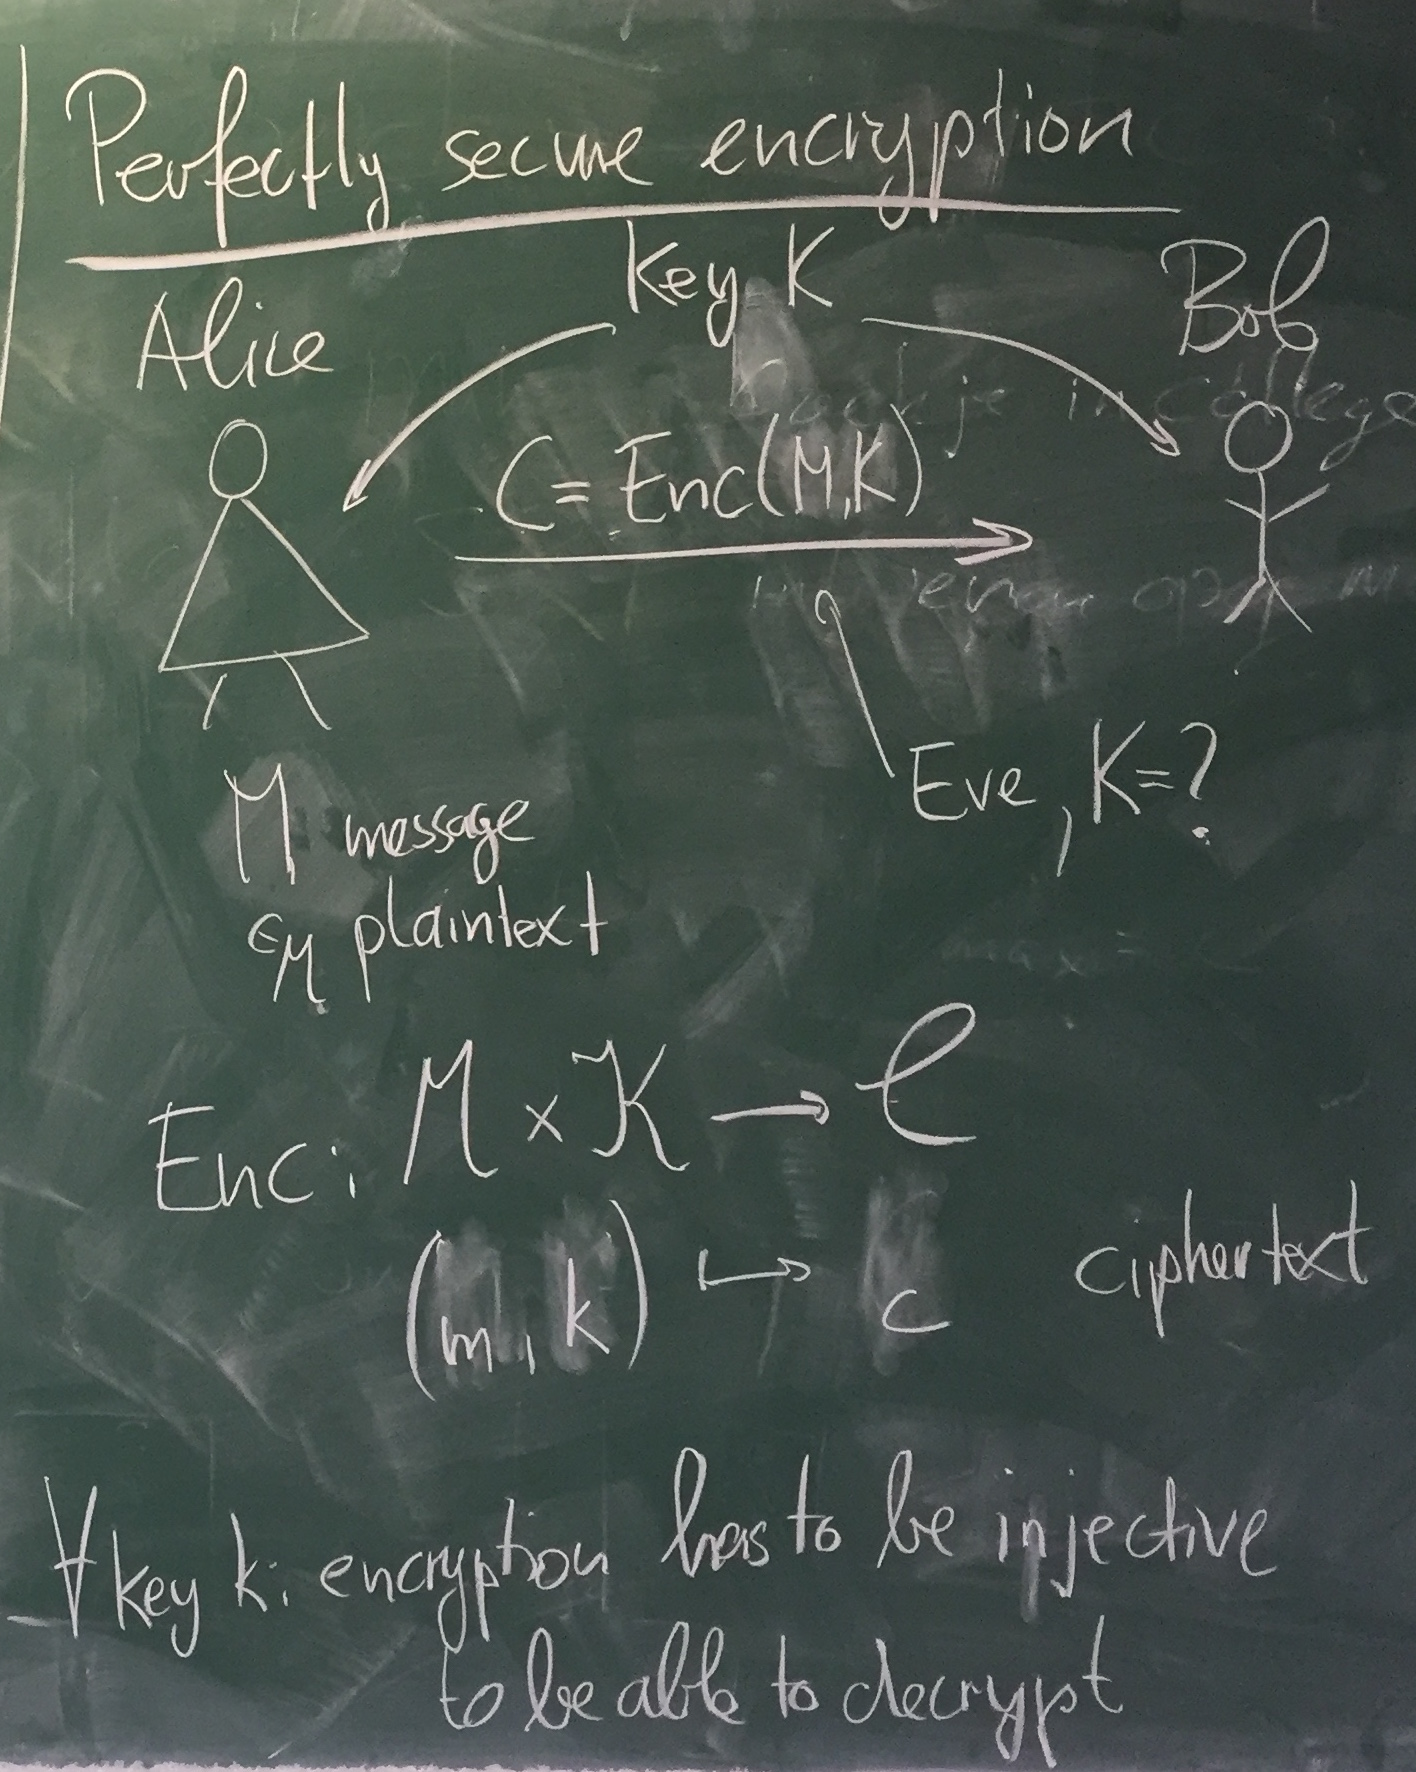 Perfectly secure encryption
Key K
Alice
Bob
C = Enc(M,K)
Eve, K=?
M message
∈ℳ plaintext
Enc: ℳ × 𝒦 → 𝒞
(m, k) ↦ c ciphertext
∀ key k: encryption has to be injective
to be able to decrypt